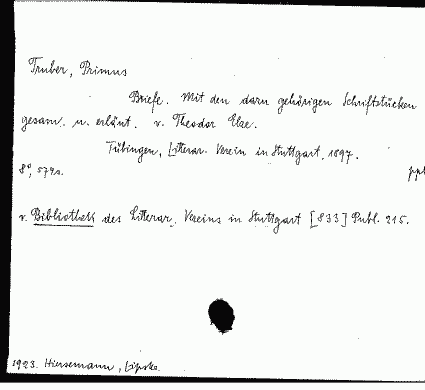 Truber, Primus
Briefe. Mit den dazu gehörigen Schriftstücken
gesam. u. erläut. v. Theodor Elze.
Tübingen, Litterar. Verein in Stuttgart, 1897.
8°, 574 s. ppt
v. Bibliothek des Litterar. Vereins in Stuttgart [833] Publ. 215.
1923. Hiersemann, Lipsko.